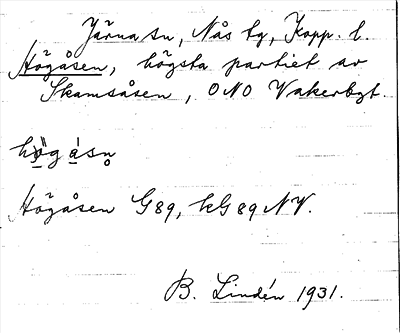 Järna sn, Nås tg, Kopp. l.
Högåsen, högsta partiet av
Skamsåsen, ONO Vakerbyt.
högåsn̥
Högåsen G 89, kG 89 NV.
B. Lindén 1931.